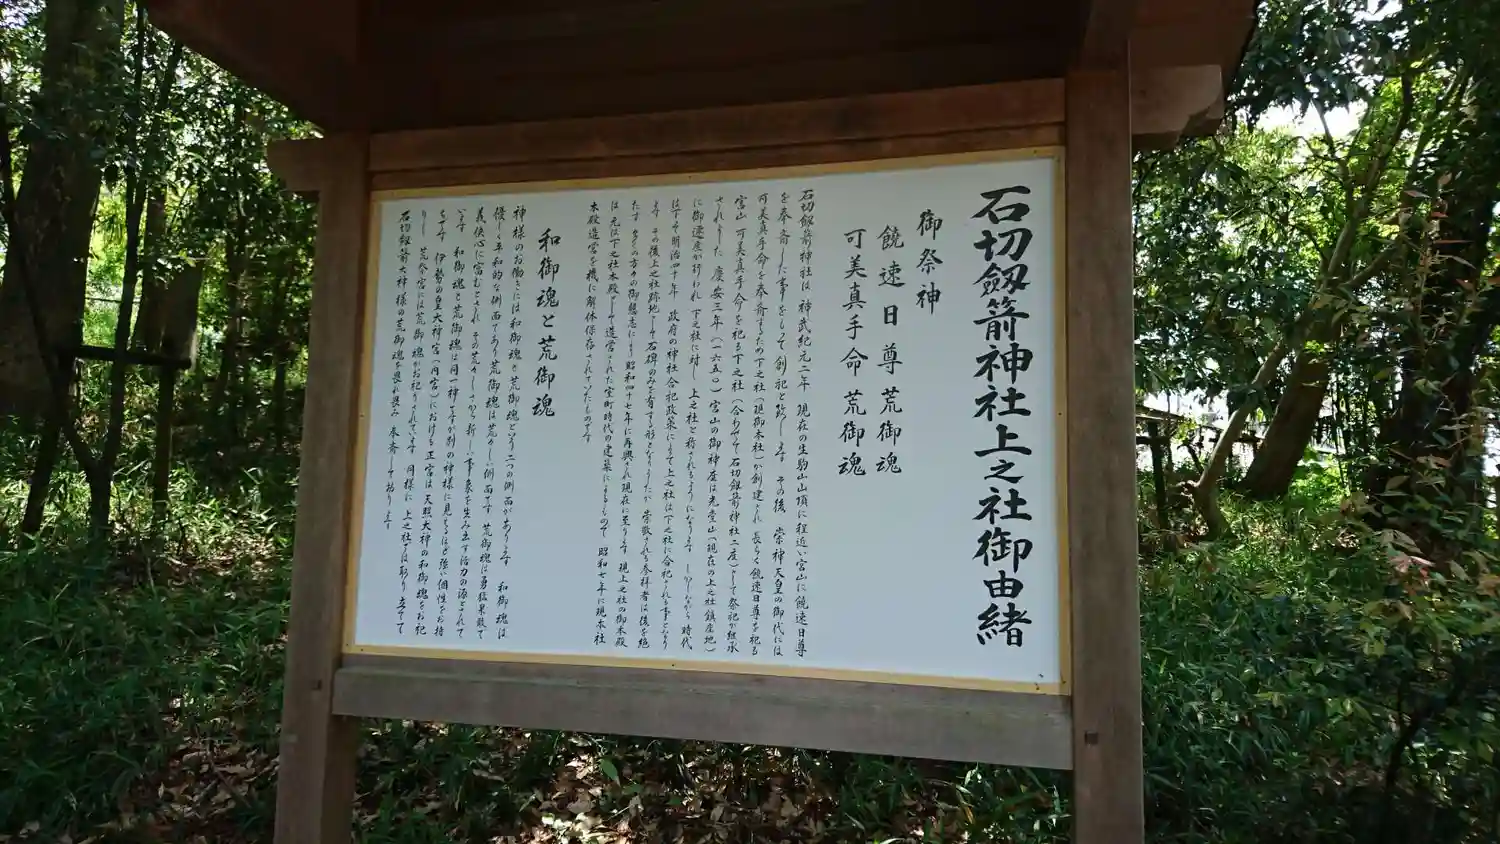 石切劔箭神社上之社御由緒
御祭神
饒速日尊 荒御魂
可美真手命 荒御魂
石切劔箭神社は 神武紀元二年 現在の生駒山山頂に程近い宮山に饒速日尊
を奉斎した事をもって創祀と致します その後 崇神天皇の御代には
可美真手命を奉斎するため下之社(現御本社)が創建され 長らく饒速日尊を祀る
宮山 可美真手命を祀る下之社(合わせて石切劔箭神社二座)として祭祀が継承
されました 慶安三年(一六五〇)宮山の御神座は光堂山(現在の上之社鎮座地)
に御遷座が行われ 下之社に対し 上之社と称されるようになります しかしながら時代
は下って明治四十年 政府の神社合祀政策によって上之社は下之社に合祀される事となり
ます その後上之社跡地として石碑のみを有する形となりましたが 崇敬される参拝者は後を絶
たず 多くの方々の御懇志により昭和四十七年に再興され現在に至ります 現上之社の御本殿
は 元は下之社本殿として造営された室町時代の建築によるもので 昭和七年に現本社
本殿造営を機に解体保存されていたものです
和御魂と荒御魂
神様のお働きには和御魂と荒御魂という二つの側面があります 和御魂は
優しく平和的な側面であり荒御魂は荒々しい側面です 荒御魂は勇猛果敢で
義侠心に富むとされ その荒々しさから新しい事象を生み出す活力の源とされて
います 和御魂と荒御魂は同一神ですが別の神様に見えるほど強い個性をお持
ちです 伊勢の皇大神宮(内宮)における正宮は 天照大神の和御魂をお祀
りし 荒祭宮には荒御魂がお祀りされています 同様に 上之社では取り立てて
石切劔箭大神様の荒御魂を畏れ畏み 奉斎して居ります